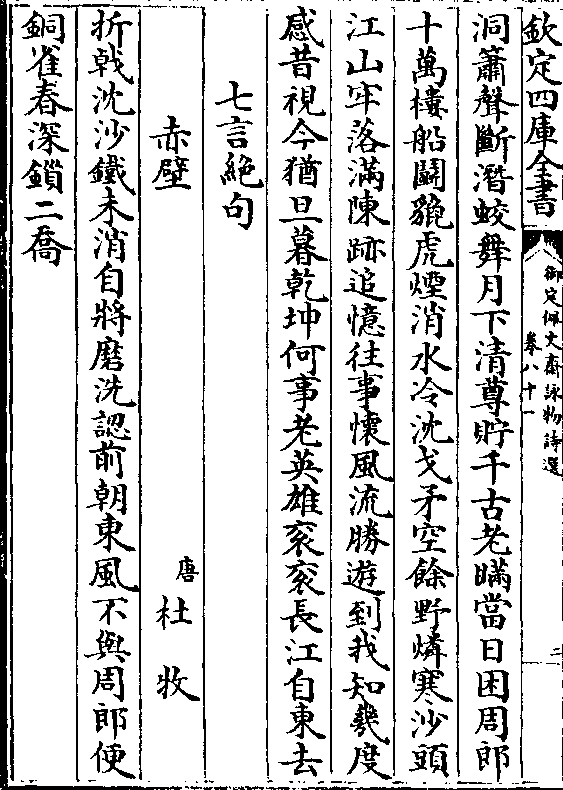 欽定四庫全書
御定佩文齋詠物詩選
卷八十一
二
洞簫聲斷潛蛟舞月下清尊貯千古老瞞當日困周郎
十萬樓船鬬貔虎煙消水冷沈戈矛空餘野燐寒沙頭
江山牢落滿陳跡追憶往事懷風流勝遊到我知幾度
感昔視今猶旦暮乾坤何事老英雄衮衮長江自東去
七言絕句
赤壁
唐杜牧
折戟沈沙鐵未消自將磨洗認前朝東風不與周郎便
銅雀春深鎖二喬